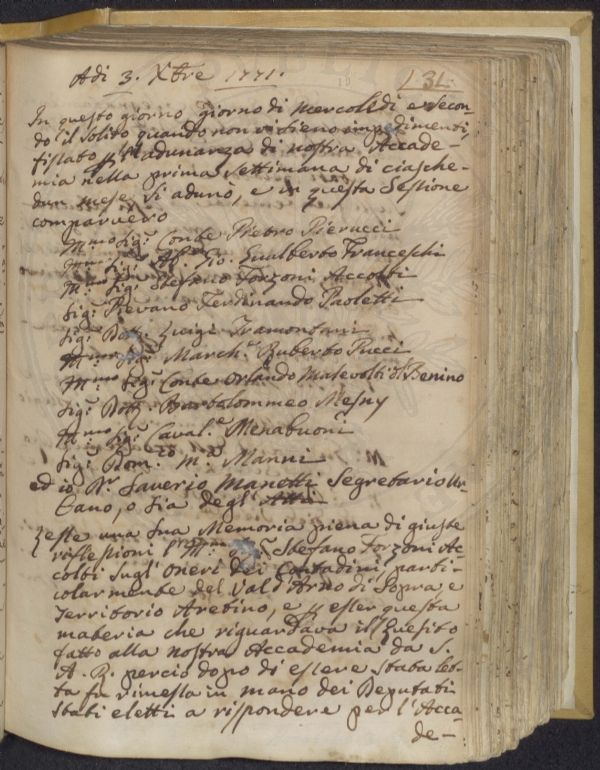 Adi 3. Xbre 1771.
131.
In questo giorno giorno di mercoledi e secon-
do il solito quando non vi sieno impedimenti,
fissato p l'adunanza di nostra Accade-
mia nella prima settimana di ciasche-
dun mese, si adunò, e in questa Sessione
comparvero
Ill.mo Sig.r Conte Pietro Pierucci
Gio. Gualberto Franceschi
Sig.r Stefano Forzoni Accolti
Sig.r Pievano Ferdinando Paoletti
Sig.r Dott. Luigi Tramontani
Sig.r March.e Ruberto Pucci
Ill.mo Sig.r Conte Orlando Malevolti del Benino
Sig.r Dott. Bartolommeo Mesny
Ill.mo Sig.r Caval.e Menabuoni
Sig.r Dom.co M.a Manni
ed io Dr. Saverio Manetti Segretario
o sia degl' Atti
Lesse una sua Memoria piena di giuste
riflessioni Stefano Forzoni Ac-
colti sugl' oneri dei Contadini, parti-
colarmente del Val d'Arno di Sopra, e
Territorio Aretino, e p esser questa
materia che riguardava il Quesito
fatto alla nostra Accademia da S.
A. R. perciò dopo di essere stata let-
ta fu rimessa in mano dei Deputati
stati eletti a rispondere per l'Acca-
de-